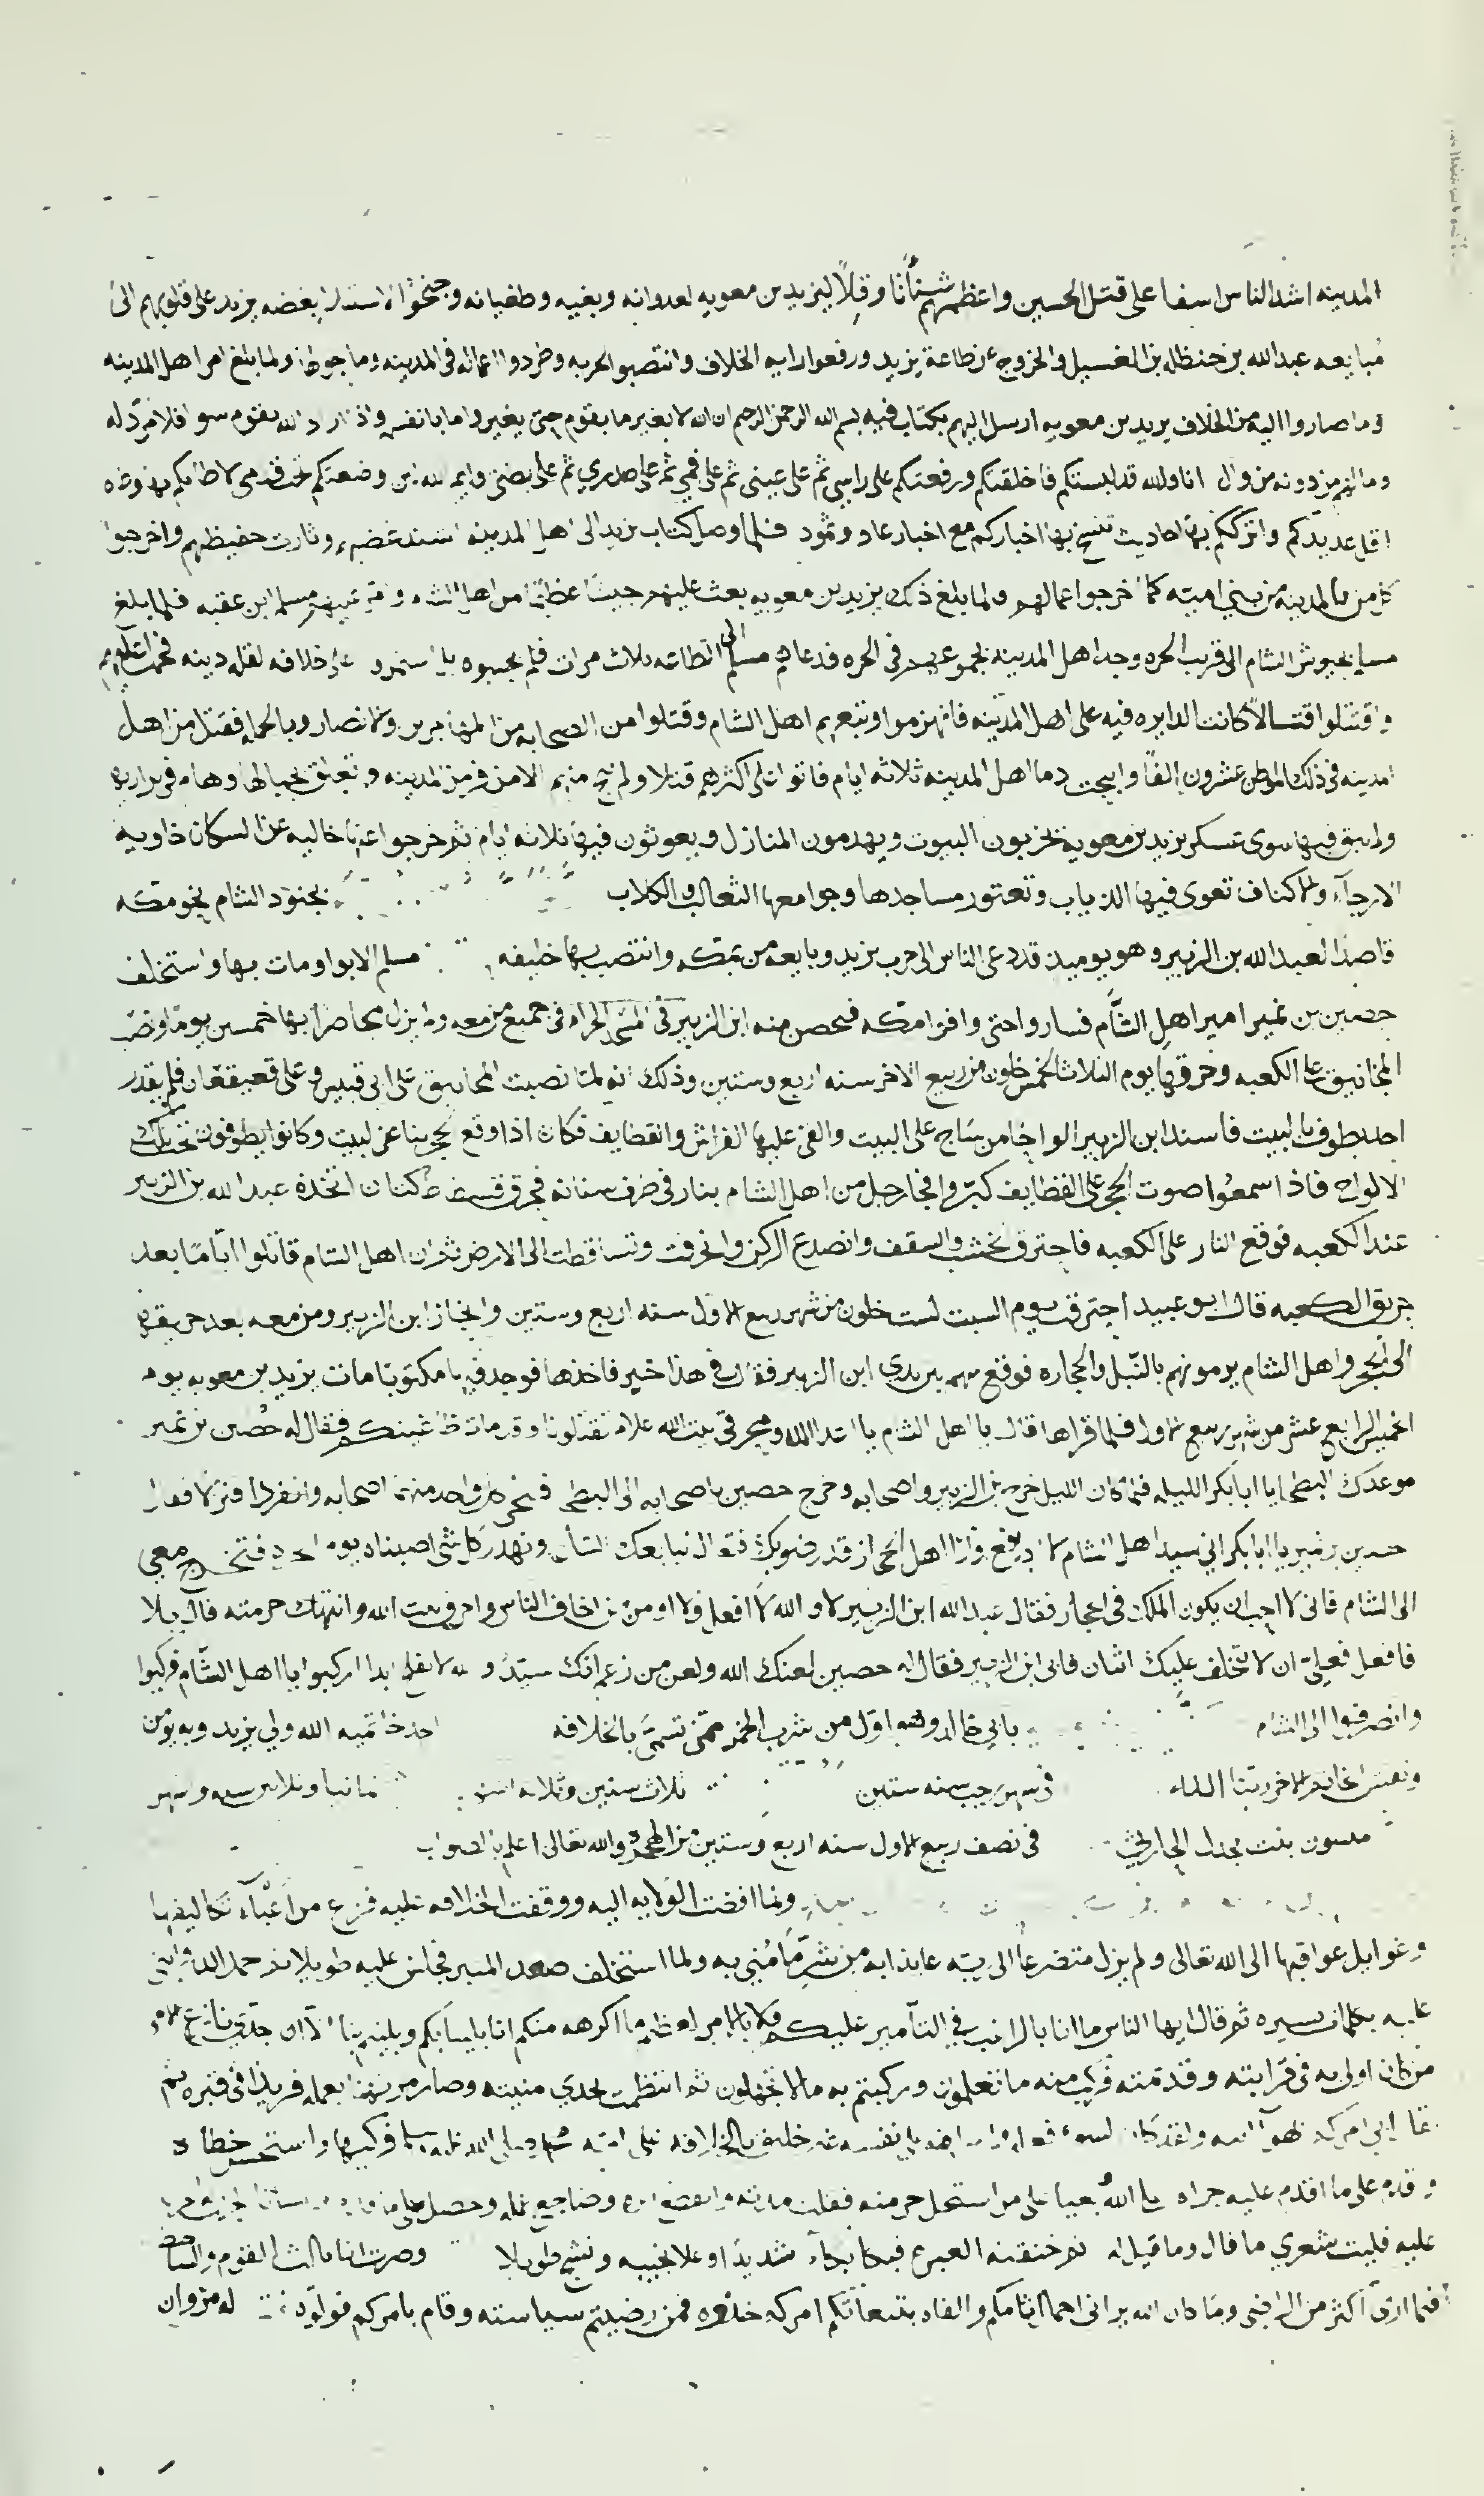 المدينه اشد الناس اسفا على قتل الحسين واعظمهم شنأنا وقلا ليزيد بن معويه لعدوانه وبغيه وطغيانه وجنحوا لاستدرار بغضه يزيد على قلوبهم الى
مبايعه عبد الله بن حنظله بن الغسيل والخروج عن طاعة يزيد ورفعوا رايه الخلاف وانتصبو لحربه وطردوا اعماله في المدينه وما حولها ولما بلغ امر اهل المدينه
وما صاروا اليه من الخلاف يزيد بن معويه ارسل اليهم بكتاب فيه بسم الله الرحمن الرحيم ان الله لا يغير ما بقوم حتى يغيروا ما بانفسهم واذا اراد الله بقوم سوا فلا مرد له
وما لهم من دونه من وال انا والله قد لبستكم فاخلقتكم ورفعتكم على راسي ثم على عيني ثم على فمي ثم على صدري ثم على بطني وايم الله لين وضعتكم تحت قدمي لاطانكم بها وطاه
اقل عديدكم واترككم بها احاديث تنسخ بها اخباركم مع اخبار عاد وثمود فلما وصل كتاب يزيد الى اهل المدينه اشتد غضبهم وثارت حفيظهم واخرجوا
كل من بالمدينه من بني اميه كما اخرجوا عمالهم ولما بلغ ذلك يزيد بن معويه بعث عليهم جيشا عظيما من اهل الشام مسلم ابن عقبه فلما بلغ
مسلم بجيوش الشام الى قرب الحره وجد اهل المدينه بجموعهم في الحره فدعاهم مسلم الى الطاعه ثلاث مرات فلم يجيبوه بل استمرو على خلافه لقله دينه
واقتتلوا قتالا كانت الدايره فيه على اهل المدينه فانهزموا وتبعهم اهل الشام وقتلوا من الصحابه من المهاجرين والانصار وبالجمله فقتل من اهل
المدينه في ذلك الموطن عشرون الفا وابيحت دما اهل المدينه ثلاثه ايام فاتوا على اكثرهم قتلا ولم ينج منهم الا من فر من المدينه وتعلق بجبالها وهام في براريها
ولم يبق فيها سوى عسكر يزيد بن معويه يخربون البيوت ويهدمون المنازل ويعوثون فيها ثلاثه ايام ثم خرجوا عنها خاليه عن السكان خاويه
الارجآء والاكناف تعوى فيها الذياب وتعتور مساجدها وجوامعها الثعالب والكلاب بجنود الشام نحو مكه
قاصدا لعبد الله بن الزبير وهو يوميذ قد دعى الناس الى حرب يزيد وبايعه من بمكه وانتصب بها خليفه مسلم الابوا ومات بها واستخلف
حصين بن نمير امير اهل الشام فساروا حتى وافوا مكه فتحصن منه ابن الزبير في المسجد الحرام في جميع من معه ولم يزل محاصرا بها خمسين يوما ونصب
المجانيق على الكعبه وخرقها يوم الثلاث لخمس خلون من ربيع الاخر سنه اربع وستين وذلك انه لما نصبت المجانيق على ابي قبيس وعلى قعيقعان فلم يقدر
احد يطوف بالبيت فاسند ابن الزبير الواحا من ساج على البيت والقى عليها الفراش والقطايف فكان اذا وقع الحجر ينبا عن البيت وكانوا يطوفون تحت تلك
الالواح فاذا سمعوا صوت الحجر على القطايف كبروا فجا رجل من اهل الشام بنار في طرف سنانه فحرق فسطاط كتان اتخذه عبد الله بن الزبير
عند الكعبه فوقع النار على الكعبه فاحترق الخشب والسقف وانصدع الركن وانحرقت وتساقطت الى الارض ثم ان اهل الشام قاتلوا اياما بعد
حريق الكعبه قال ابو عبيد احترقت يوم السبت لست خلون من شهر ربيع الاول سنه اربع وستين وانجاز ابن الزبير ومن معه بعد حريقها
الى الحجر واهل الشام يرمونهم بالنبل والحجاره فوقع سهم بين يدي ابن الزبير فقال في هذا خير فاخذها فوجد فيها مكتوبا مات يزيد بن معويه يوم
الخميس الرابع عشر من شهر ربيع الاول فلما قراها قال يا اهل الشام يا اعدا الله ومحرقي بيت الله علام تقتلونا وقد مات طاغيتكم فقال له حصين بن نمير
موعدك البطحا يا ابا بكر الليله فلما كان الليل خرج بن الزبير واصحابه وخرج حصين باصحابه الى البطحا فتنحى كل واحد منهما اصحابه وانفردا فنزلا فقال
حصين بن نمير يا ابا بكر اني سيد اهل الشام لا ادفع وان اهل الحجاز قد رضوا بك فتعال نبايعك الساعه ونهدر كل شي اصبناه يوم الحره فتخرج معي
الى الشام فاني لا احب ان يكون الملك في الحجاز فقال عبد الله ابن الزبير لا والله لا افعل ولا اومن من اخاف الناس واحرق بيت الله وانتهك حرمته قال بلا
فافعل فعلى ان لا تختلف عليك اثنان فابى ابن الزبير فقال له حصين لعنك الله ولعن من زعم انك سيد والله لا تفلح ابدا اركبوا يا اهل الشام فركبوا
وانصرفوا الى الشام يابي خالد وهو اول من شرب الخمر ممن تسمى بالخلافه احد خاتميه الله ولي يزيد وبه يومن
ونقش خاتمه الاخر ربنا الله في شهر رجب سنه ستين ثلاث سنين وثلاثه اشهر ثمانيا وثلاثين سنه واشهر
ميسون بنت بجدل في نصف ربيع الاول سنه اربع وستين من الهجره والله تعالى اعلم بالصواب
ولما افضت الولايه اليه ووقفت الخلافه عليه فزع من اعبآء تكاليفها
وغوايل عواقبها الى الله تعالى ولم يزل متضرعا الى ربه عايذا به من شر ما مني به ولما استخلف صعد المنبر فجلس عليه طويلا ثم حمد الله واثنى
عليه بكلمات يسيره ثم قال ايها الناس ما انا بالراغب في التآمير عليكم ولا بالامن لعظيم ما اكرهه منكم انا بلينا بكم وبليتم بنا الا ان جدي نازع الامر
من كان اولى به في قرابته وقدمته فركب منه ما تعلمون وركبتم به ما لا تجهلون ثم انتظمت لجدي منيته وصار مرتهنا بعمله فريدا في قبره ثم
ابي امركم على امته محمد صلى الله عليه وسلم فركبها واستحسن خطاه
وقدم على ما اقدم عليه جراه على الله وبغيا على من استحل حرمته فقلت مدته وانقطع اثره وضاجع عمله
عليه فليت شعري ما قال وما قيل له ثم خنقته العبره فبكا بكآء شديدا وعلا نحيبه ونشج طويلا وصرت انا ثالث القوم والساخط
فيما ارى اكثر من الراضي وما كان الله يراني احمل اثامكم والقاه بتبعاتكم امركم خذوه فمن رضيتم سياسته وقام بامركم فولوه له مروان